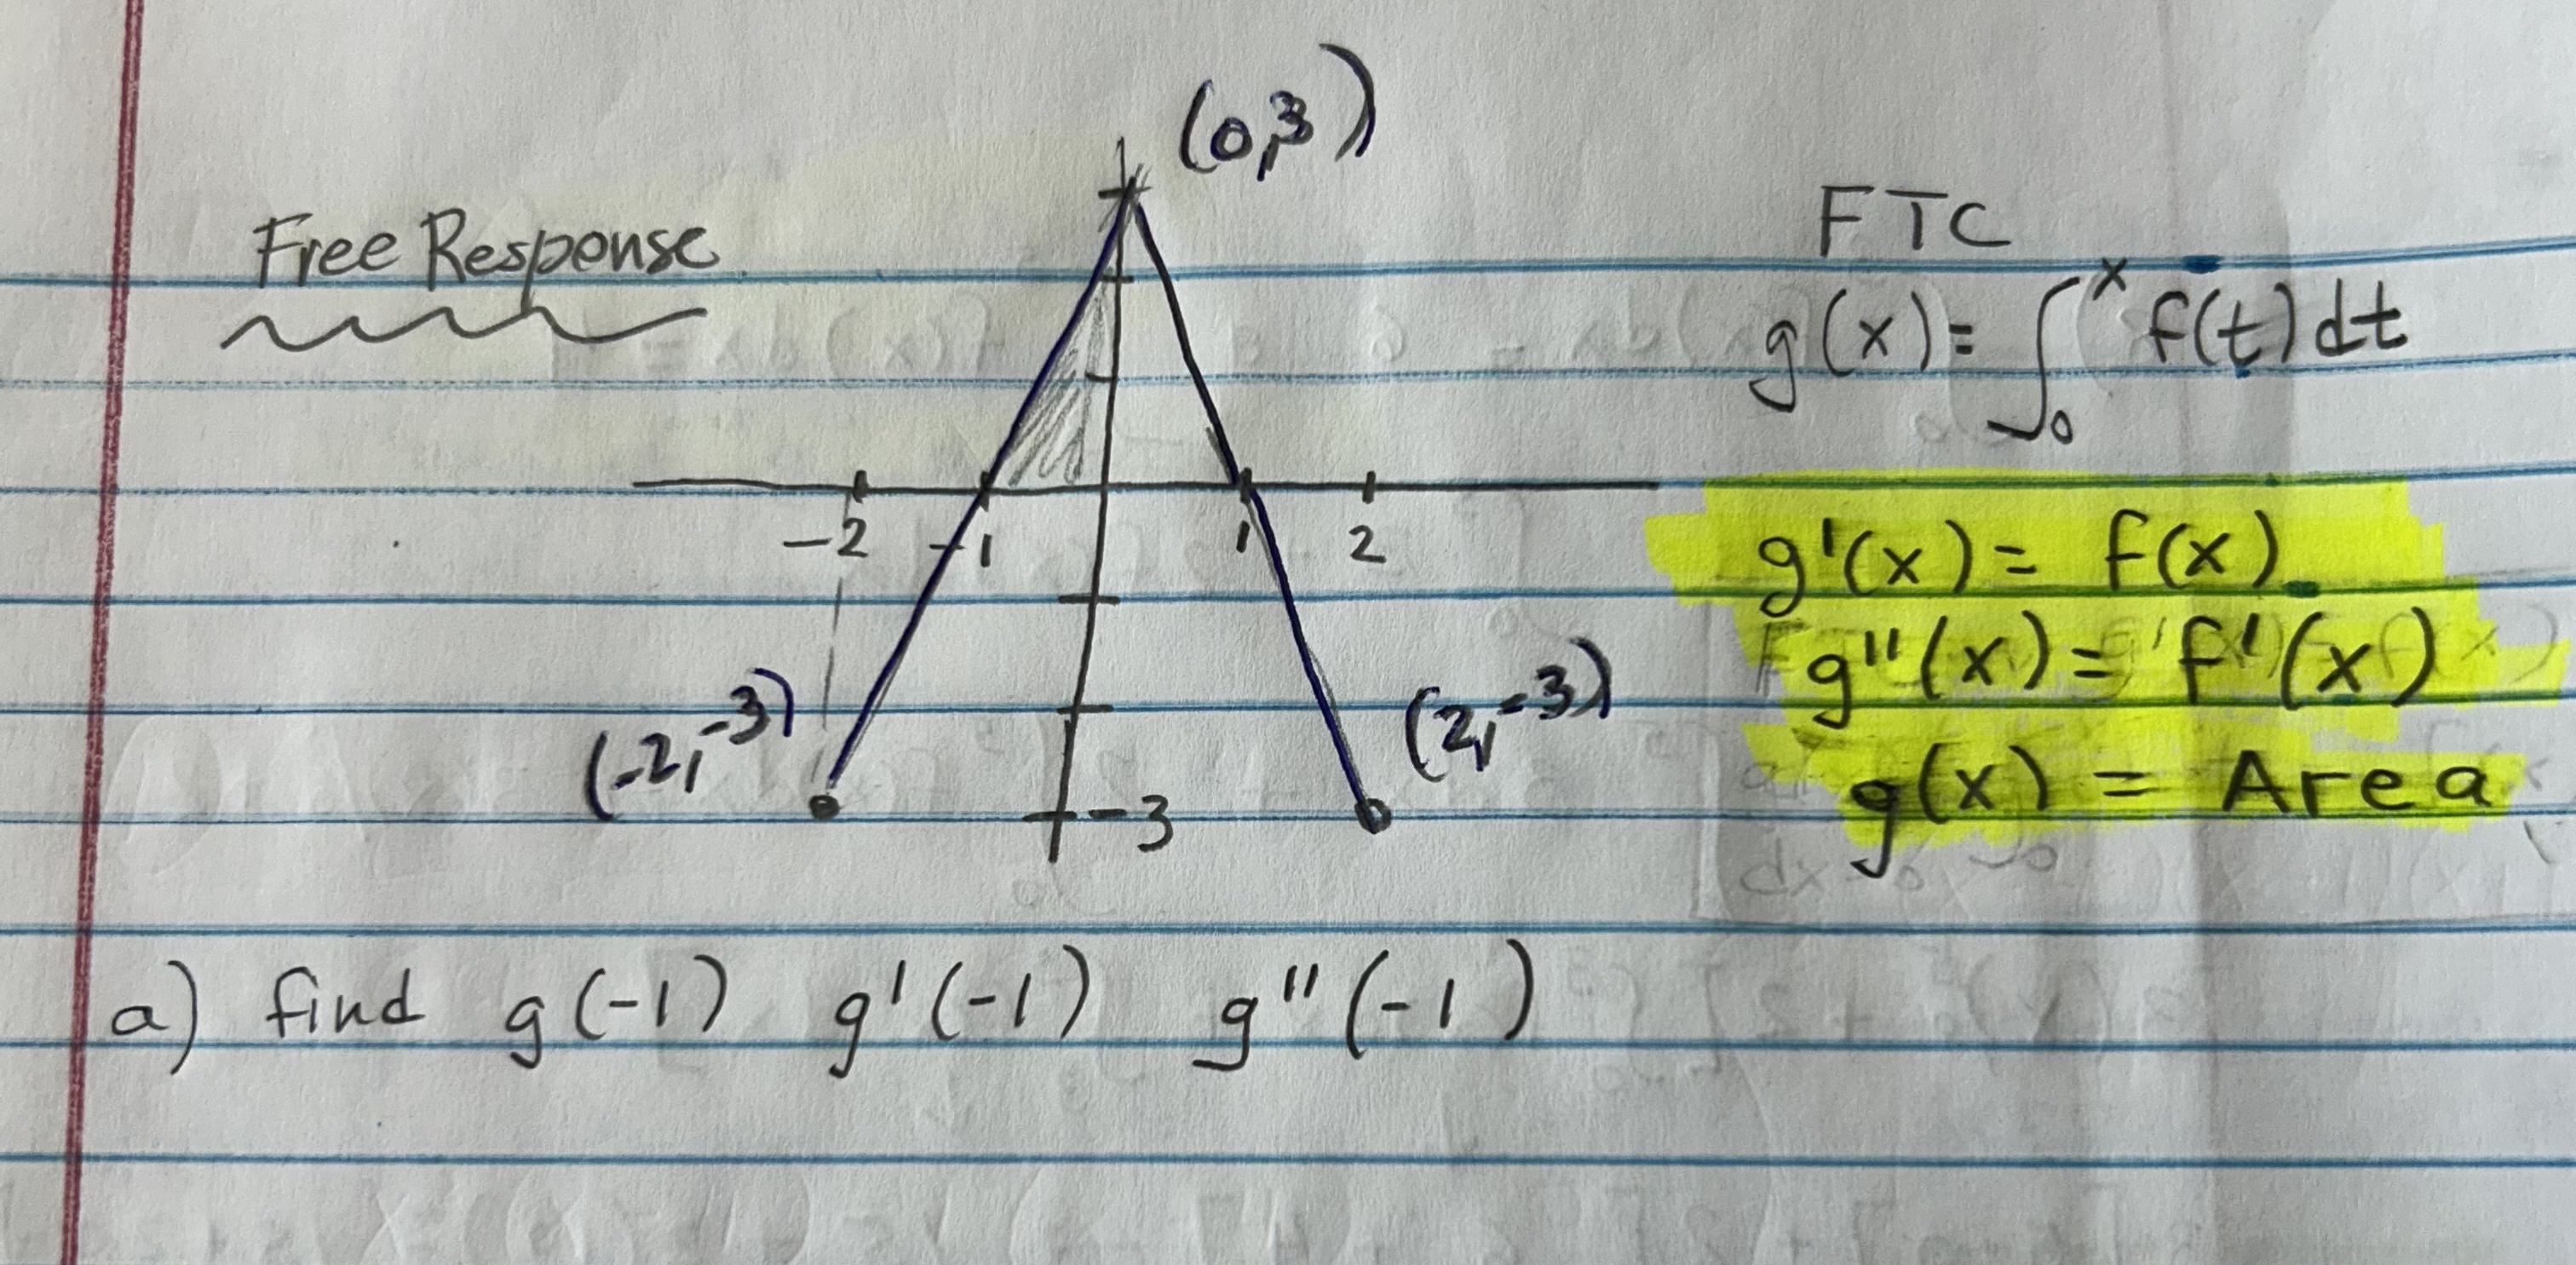 (0,3)
Free Response
FTC
g(x)= ∫₀ˣ f(t)dt
-2 -1 1 2
g'(x) = f(x)
g''(x) = f'(x)
(-2,-3) (2,-3)
g(x) = Area
-3
a) find g(-1) g'(-1) g''(-1)